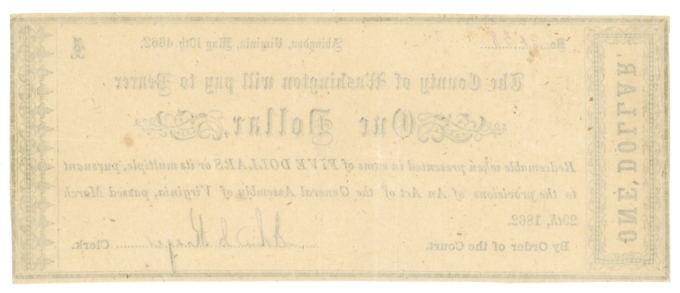 ONE, DOLLAR,
No.
Abingdon, Virginia, May 10th, 1862.
1
The County of Washington will pay to Bearer
One Dollar,
Redeemable when presented in sums of FIVE DOLLARS or its multiple, pursuant,
to the provisions of An Act of the General Assembly of Virginia, passed March
29th, 1862.
By Order of the Court.
John G. Clerk.